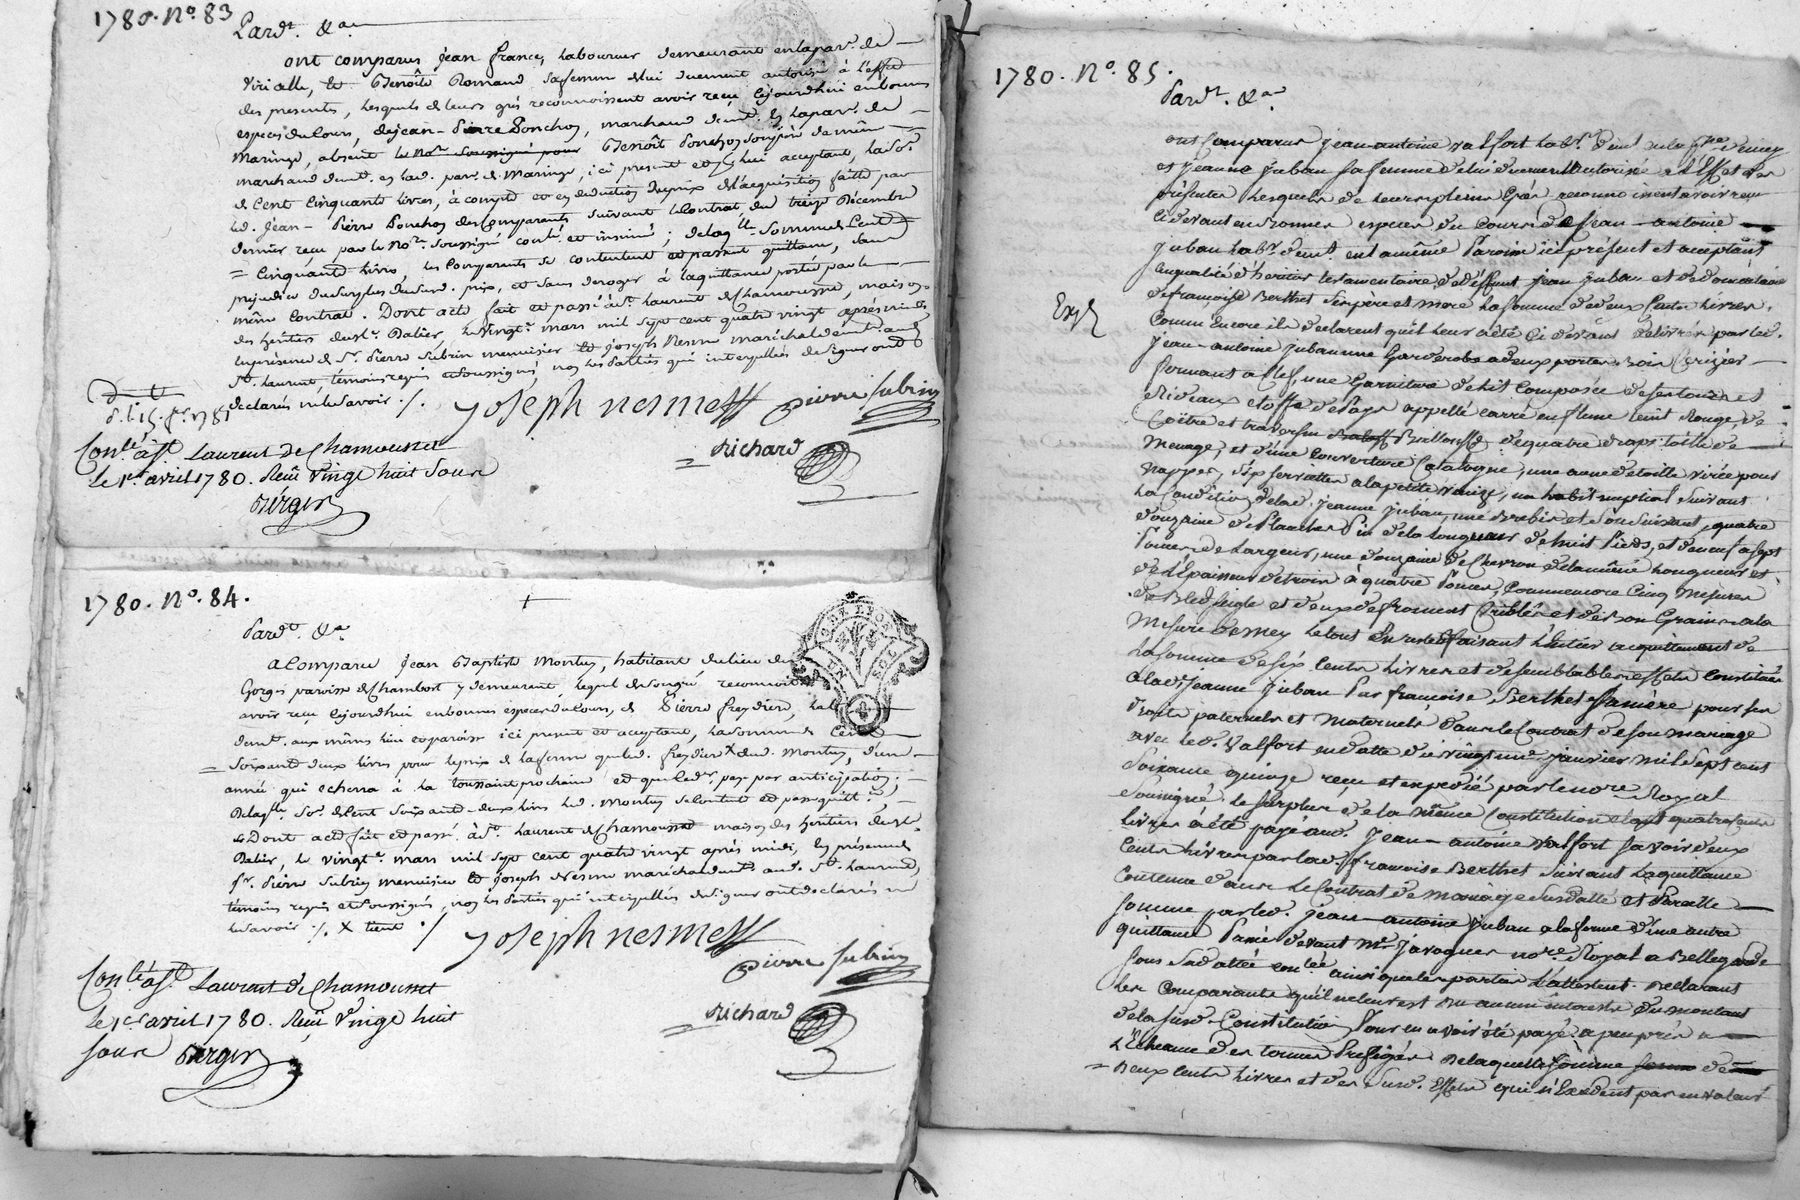 1780. No. 83
Pardt. &a.
ont comparus jean france, laboureur demeurant en la par. de
viri&lle, et Benoîte Romand sa femme de lui duement autorisé à l'effet
des presents, lesquels de leurs grés reconnoissent avoir reçu cejourdhui en bonnes
especes du cours, de jean-Pierre Ponchon, marchand demt. en la par. de
Maringe, absent le nore. soussigné pour Benoît Ponchon son père de même
marchand demt. en lad. par. de Maringe, ici présent et acceptant, la so.e
de Cent Cinquante livres, à compte et en deduction du prix de l'acquisition faitte par
led. jean-Pierre Ponchon des Comparants suivant le Contrat du treize Décembre
dernier reçu par le No.re soussigné conlé. et insinué; de laq.lle somme de Cent
= Cinquante livres, les Comparants se contentent et passent quittance, sans
prejudice du surplus dusd. prix, et sans deroger à la quittance portée par le
même contrat. Dont acte fait et passé à St. laurent de Chamousset, maison
des héritiers de sr. Balier, le vingt.e mars mil sept cent quatre vingt après midi
en présence de Sr. Pierre Subrin menuisier et joseph Nesme maréchal demt. aud.
St. laurent, témoins requis et soussignés, non les parties qui interpellés de signer ont
déclarés ne le savoir ./.
joseph nesme
pierre subrin
Richard
Conlé. à St. Laurent de Chamousset
le 1er avril 1780. Reçu Vingt huit sous
Berger
1780. No. 84.
+
Pardt. &a.
a Comparu jean Baptiste Montuy, habitant du lieu de
Gorges paroisse de Chambost y demeurant, lequel de son gré reconnoit
avoir reçu cejourdhui en bonnes especes du cours, de Pierre freydiere, lab.
demt. aux mêmes lieu et paroisse ici present et acceptant, la somme de Cent
= Soixante deux livres pour le prix de la ferme que led. freydiere x dud. Montuy, d'une
année qui echerra à la toussaint prochaine et que led.r paye par anticipation;
De laq.lle so.e de Cent soixante-deux livres led. Montuy se contente et passe quitt.ce
Dont acte fait et passé à St. laurent de Chamousset maison des héritiers de sr.
Balier, le vingt.e mars mil sept cent quatre vingt après midi, en présence de
sr. Pierre Subrin menuisier et joseph Nesme maréchal demts. aud. St. laurent,
témoins requis et soussignés, non les Parties qui interpellés de signer ont déclarés ne
le savoir ./. x tient ./
joseph nesme
pierre subrin
Richard
Conlé à St. Laurent de Chamousset
le 1er avril 1780. Reçu Vingt huit
sous Berger
1780. No. 85.
Pardt. &a.
ont comparus jean-antoine valfort lab.r demt. en la p.sse d'
et jeanne juban sa femme de lui duement autorisé à l'Effet des
présentes lesquels de leurs pleins grés reconnoissent avoir reçu
ci devant en bonnes especes du cours de jean-antoine
juban lab.r demt. en la même Paroisse ici présent et acceptant
en qualité d'héritier testamentaire de déffunt jean juban et de donnataire
de françoise Berthet ses père et mere la somme de deux Cents livres.
Exp.
Comme Encore ils déclarent qu'il leur a été Ci devant delivrer par led.
jean-antoine juban une Garderobe a deux portes Bois Cerizier
fermant a Clef, une garniture de lit composée de ses tours et
Rideaux etoffe de Pays appellé carré en fleur teint Rouge, de
Coitre et traversin de quatre draps toille de
menage, et d'une couverture Catalogne, une aune de toille pour
nappes, six serviettes a la petite venize, un habit nuptial suivant
la Condition de lad. jeanne juban, une Brebis et son suivant, quatre
douzaine de Planches Pin de la longueur de huit Pieds, et de neuf a sept
Pouces de Largeur, une douzaine de Chevron de la même longueur et
de l'épaisseur de trois à quatre Pouces, Comme encore Cinq mesures
de Bled seigle et deux de froment Criblés et de bon Grain a la
mesure le tout faisant l'entier acquittement de
la somme de six Cents livres et de semblables effets Constitués
a lad. jeanne juban Par françoise Berthet sa mère pour ses
droits paternels et maternels dans le Contrat de son mariage
avec led. Valfort en datte du vingt janvier mil sept cent
soixante quinze reçu et expédié par le no.re Royal
soussigné. le surplus de la même Constitution etant quatre Cents
livres a été payé aud. jean-antoine valfort savoir deux
Cents livres par lad. françoise Berthet suivant la quittance
contenue dans le Contrat de mariage susdatté et Pareille
somme par led. jean-antoine juban a la forme d'une autre
quittance Passé devant Me. javogues no.re Royal a Bellegarde
sous sa datte conlée ainsi que les parties l'attestent. declarant
les comparants qu'il ne leur est du aucun intérets du montant
de la susd. Constitution Pour en avoir été payé a peu près a
l'échéance des termes Prefigés. De laquelle somme de
= Deux Cents livres et des susd. Effets qui n'Excedent pas en valeur